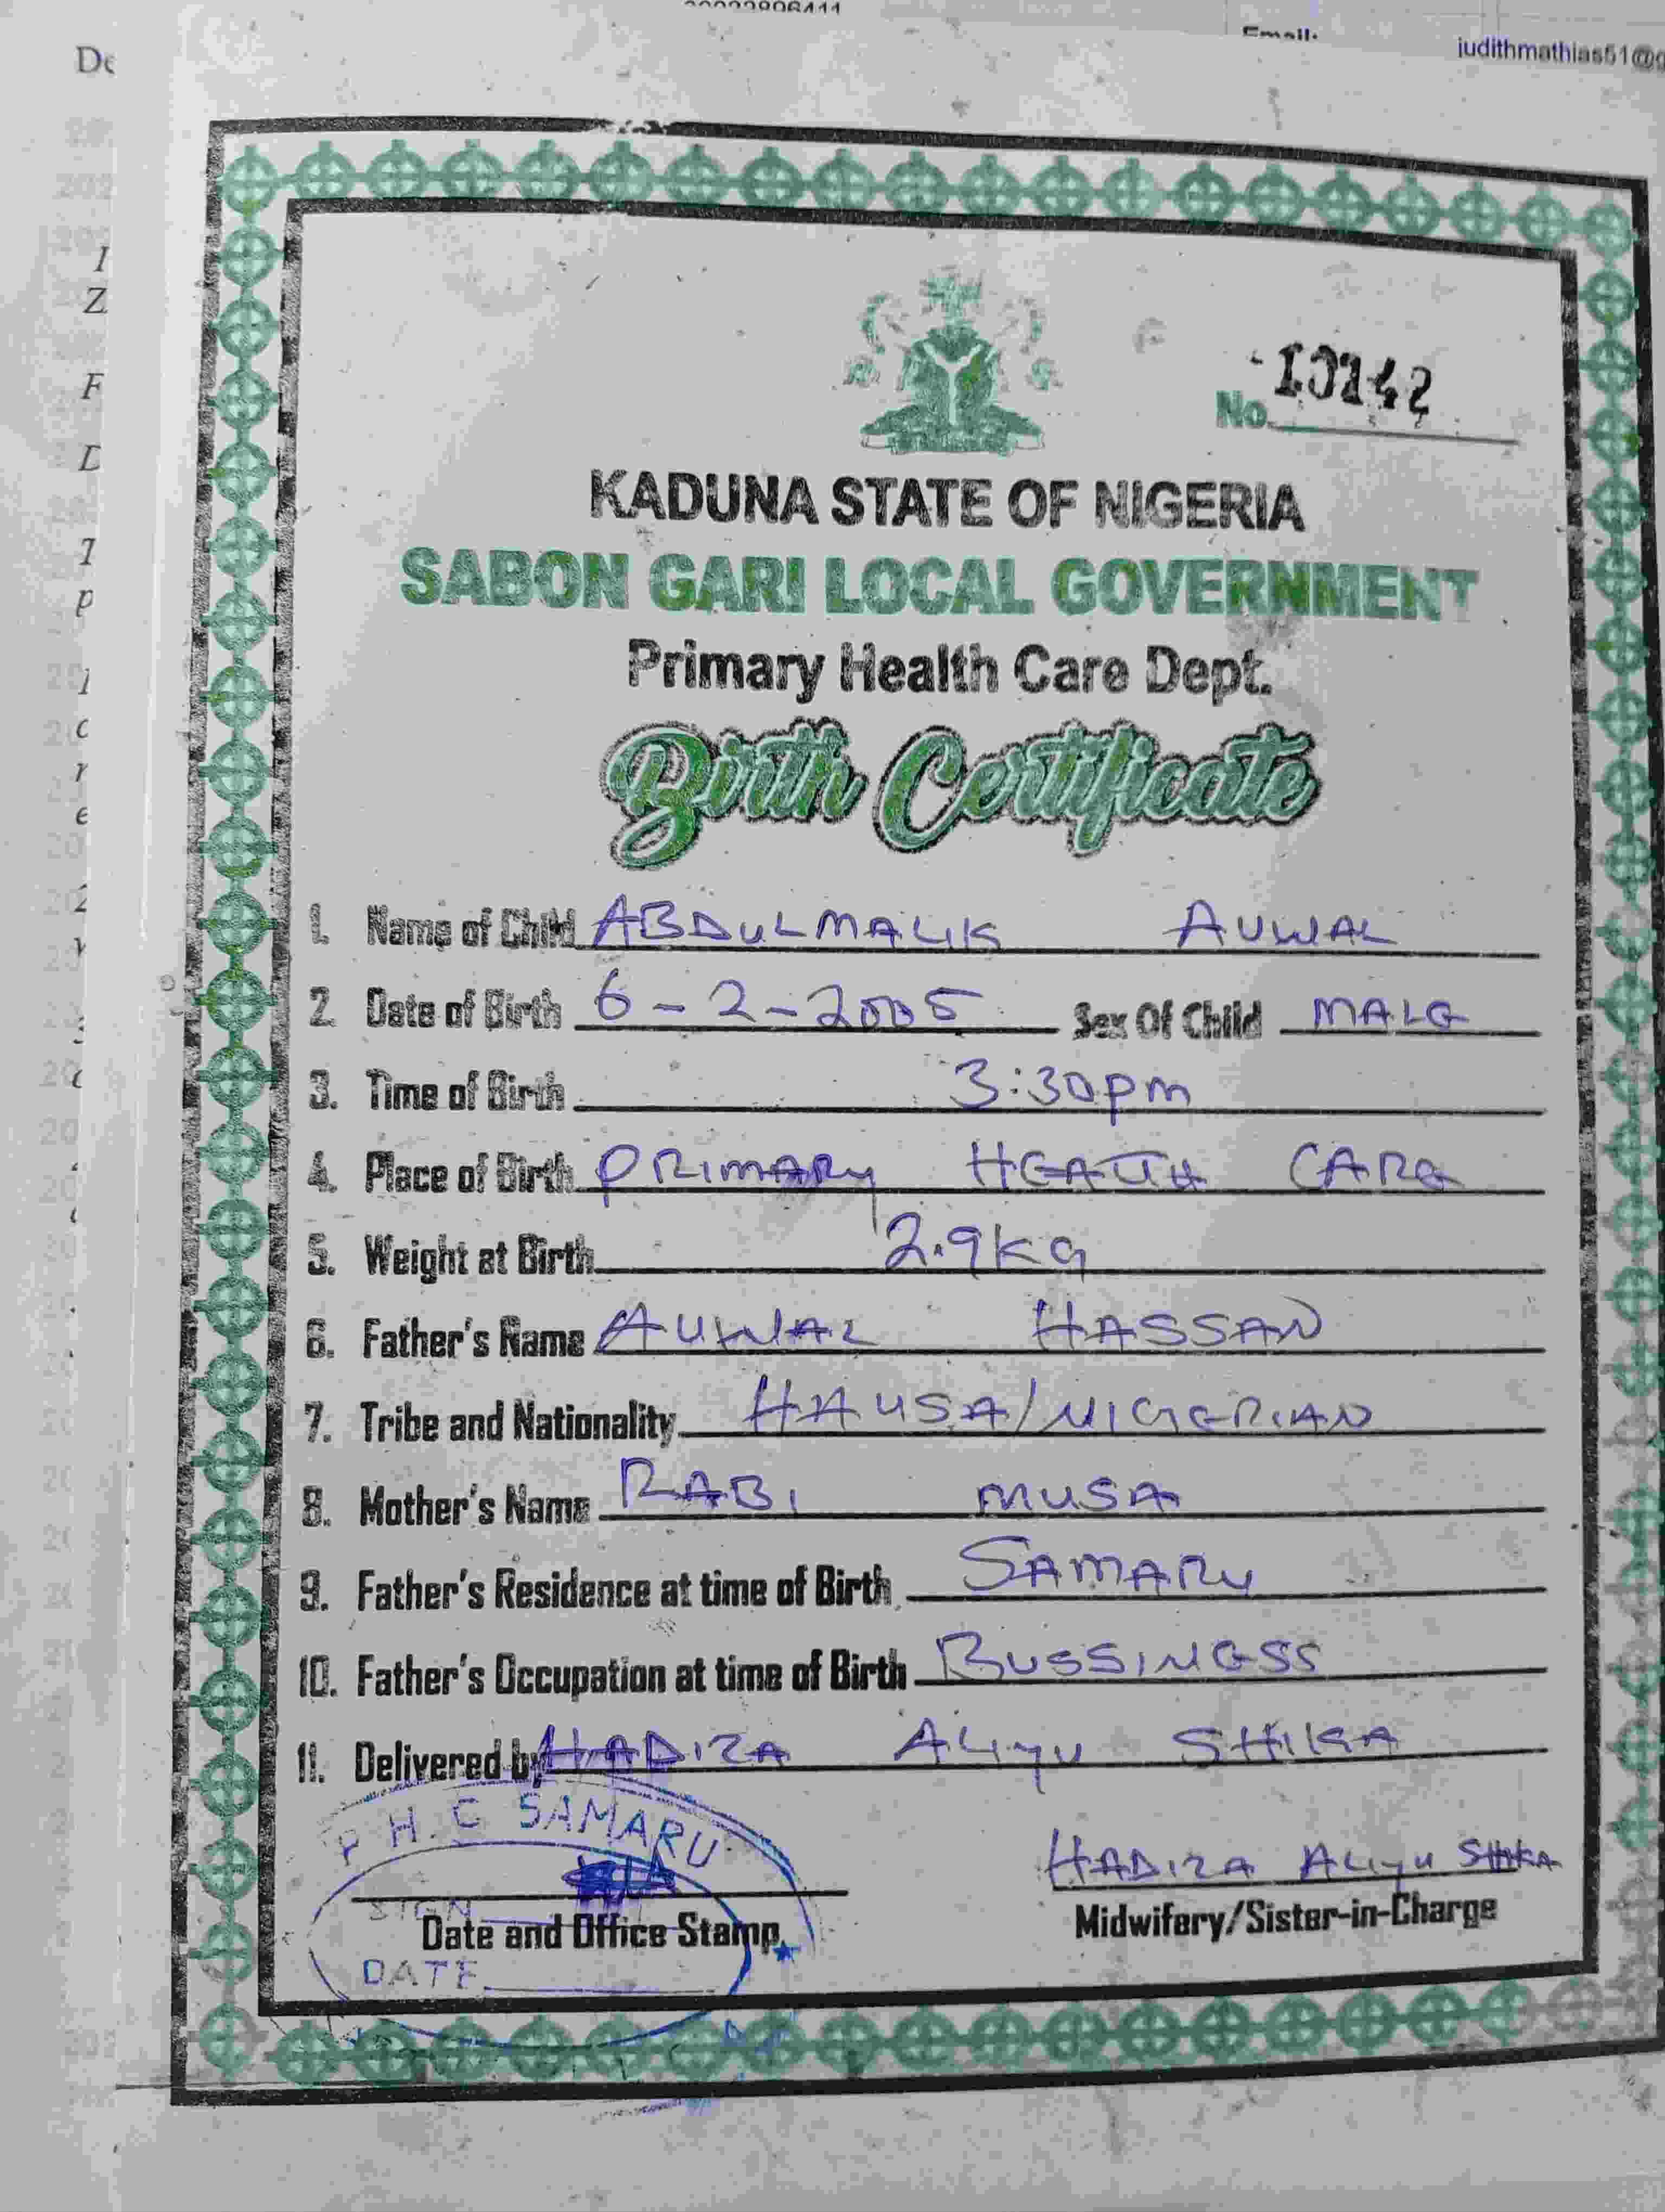 Email:
judithmathias51@g
De
No. 10142
KADUNA STATE OF NIGERIA
SABON GARI LOCAL GOVERNMENT
Primary Health Care Dept.
Birth Certificate
1. Name of Child ABDULMALIK AUWAL
2. Date of Birth 6-2-2005 Sex Of Child MALE
3. Time of Birth 3:30pm
4. Place of Birth PRIMARY HEALTH CARE
5. Weight at Birth 2.9KG
6. Father's Name AUWAL HASSAN
7. Tribe and Nationality HAUSA/NIGERIAN
8. Mother's Name RABI MUSA
9. Father's Residence at time of Birth SAMARU
10. Father's Occupation at time of Birth BUSSINESS
11. Delivered by HADIZA ALIYU SHIKA
P.H.C SAMARU
HADIZA ALIYU SHIKA
SIGN
Date and Office Stamp Midwifery/Sister-in-Charge
DATE